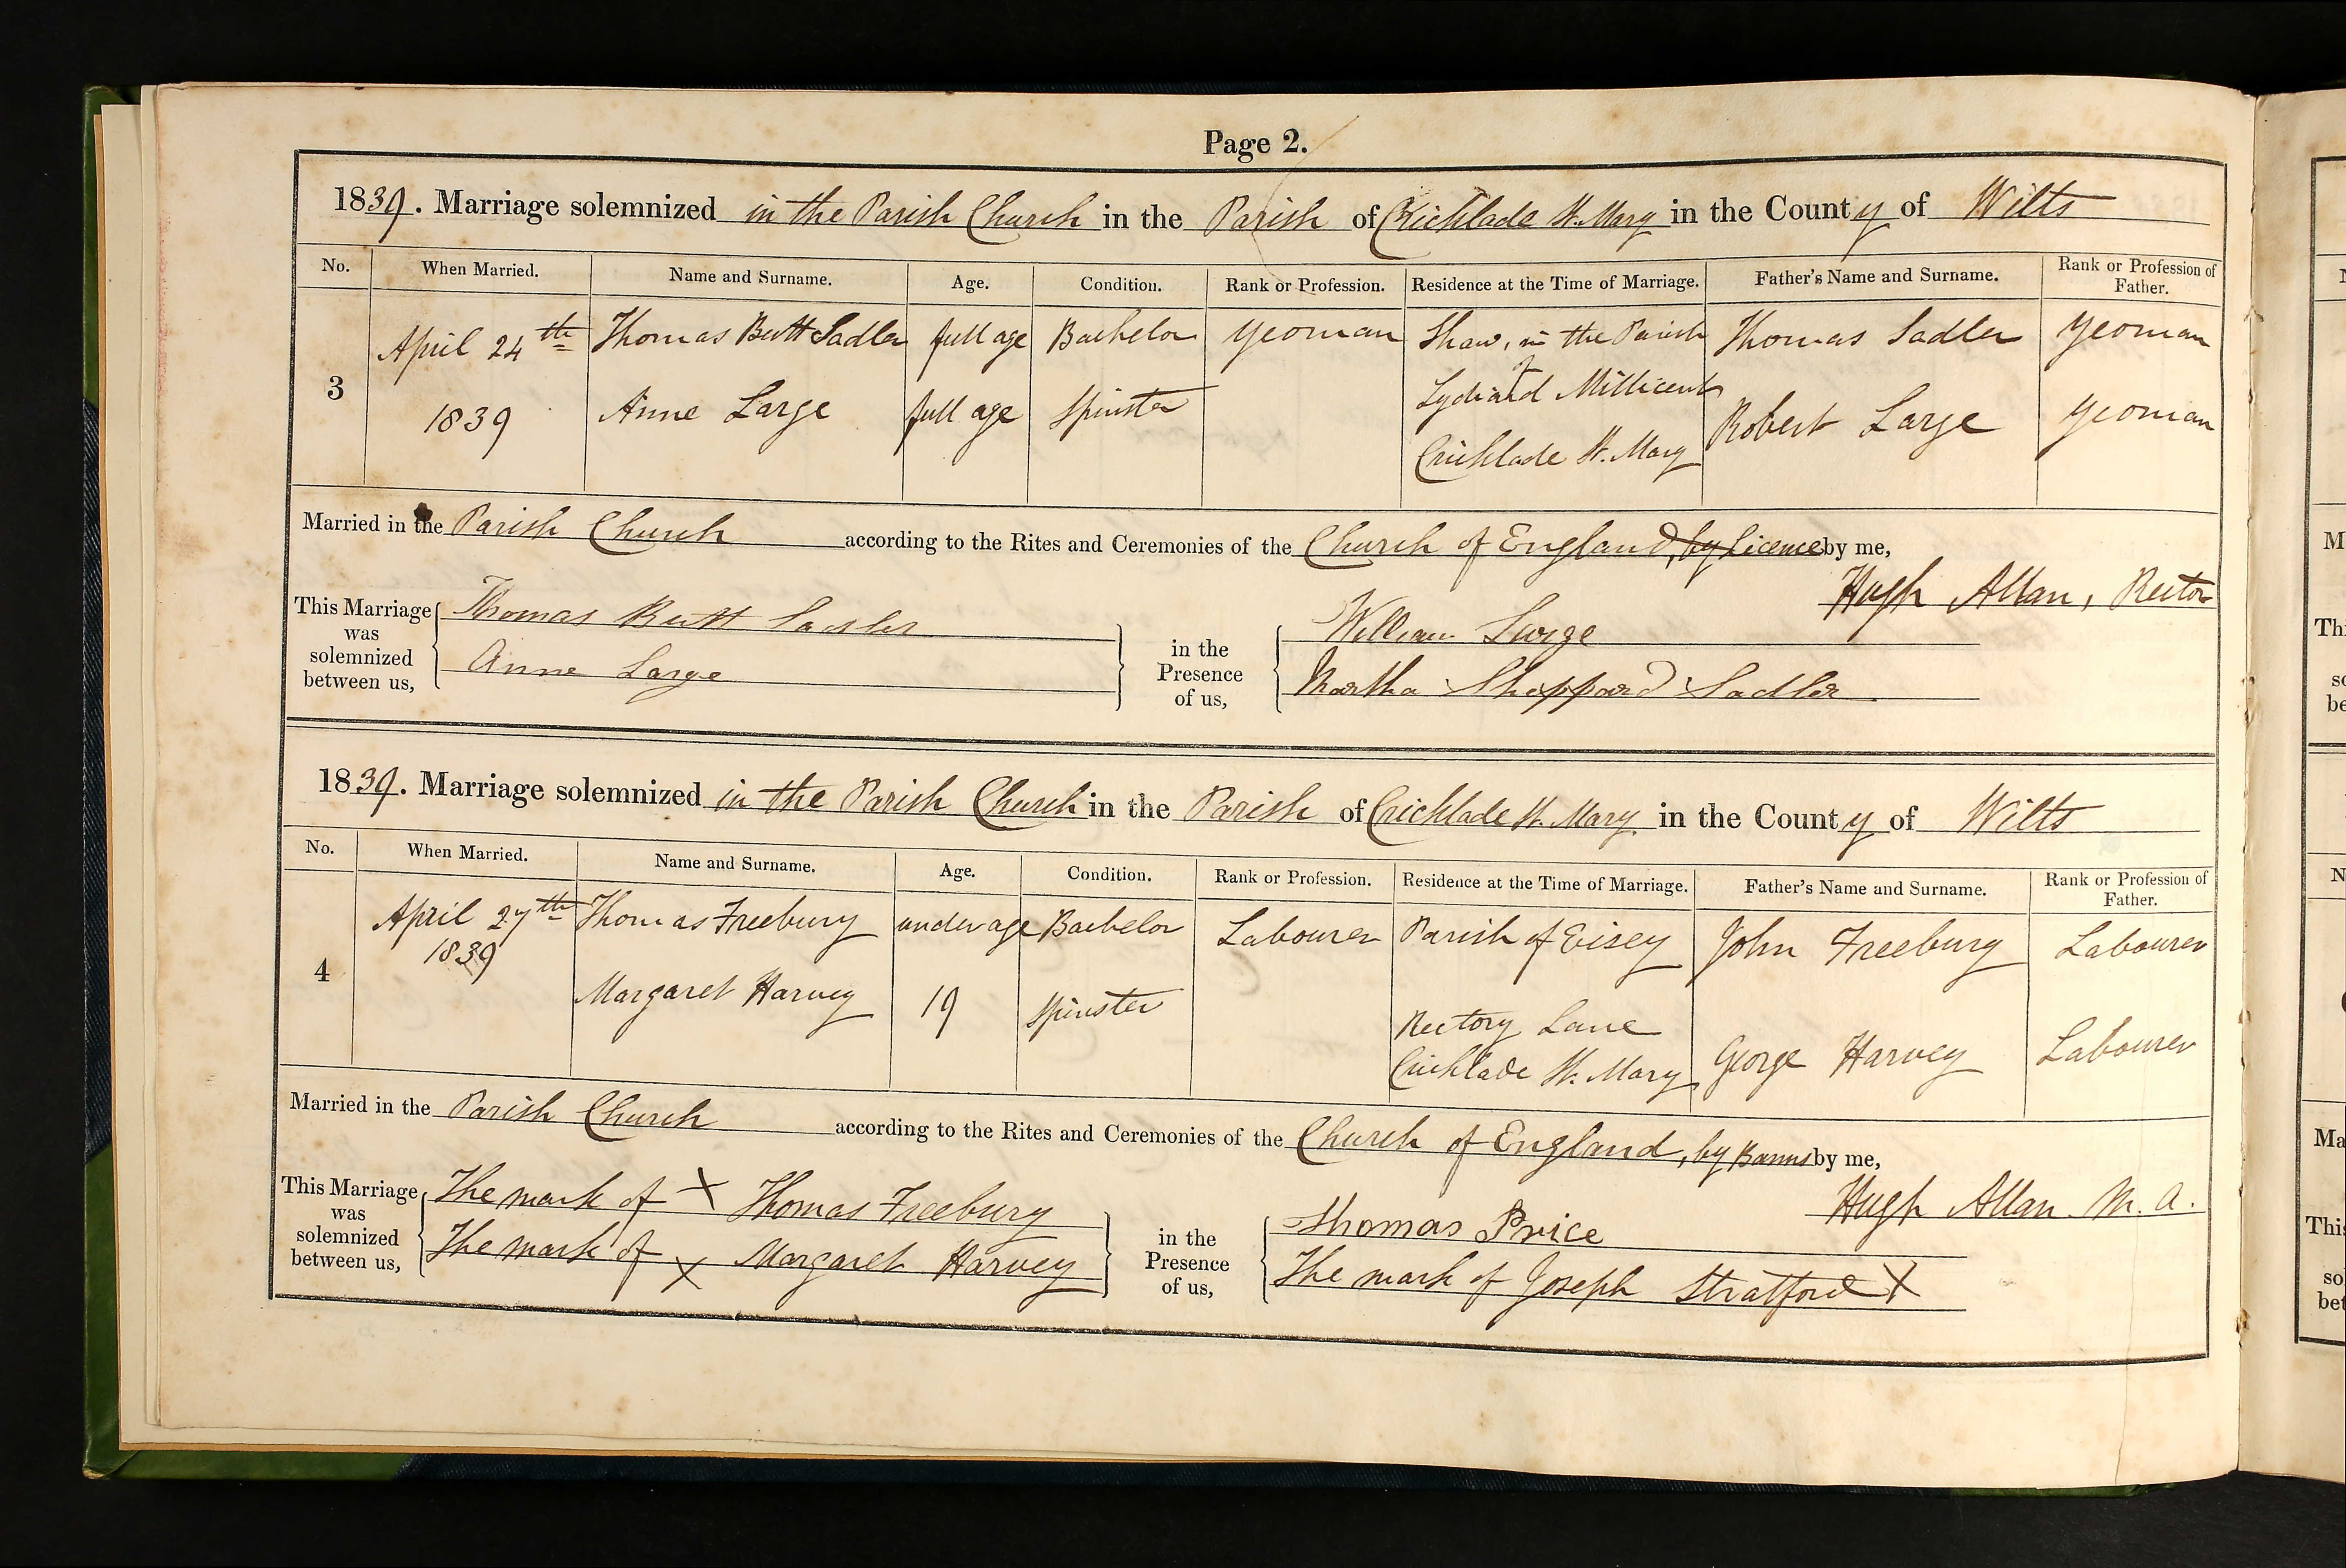 Page 2.
1839. Marriage solemnized in the Parish Church in the Parish of Cricklade St. Mary in the County of Wilts
No. When Married. Name and Surname. Age. Condition. Rank or Profession. Residence at the Time of Marriage. Father's Name and Surname. Rank or Profession of Father.
3 April 24th 1839 Thomas Butt Sadler full age Bachelor Yeoman Shaw, in the Parish of Lydiard Millicent Thomas Sadler Yeoman
Anne Large full age Spinster Cricklade St. Mary Robert Large Yeoman
Married in the Parish Church according to the Rites and Ceremonies of the Church of England, by Licence by me,
Hugh Allan, Rector
This Marriage was solemnized between us, Thomas Butt Sadler
Anne Large
in the Presence of us, William Large
Martha Sheppard Sadler
1839. Marriage solemnized in the Parish Church in the Parish of Cricklade St. Mary in the County of Wilts
No. When Married. Name and Surname. Age. Condition. Rank or Profession. Residence at the Time of Marriage. Father's Name and Surname. Rank or Profession of Father.
4 April 27th 1839 Thomas Freebury under age Bachelor Labourer Parish of Eisey John Freebury Labourer
Margaret Harvey 19 Spinster Rectory Lane Cricklade St. Mary George Harvey Labourer
Married in the Parish Church according to the Rites and Ceremonies of the Church of England, by Banns by me,
Hugh Allan. M. A.
This Marriage was solemnized between us, The mark of X Thomas Freebury
The mark of X Margaret Harvey
in the Presence of us, Thomas Price
The mark of Joseph Stratford X